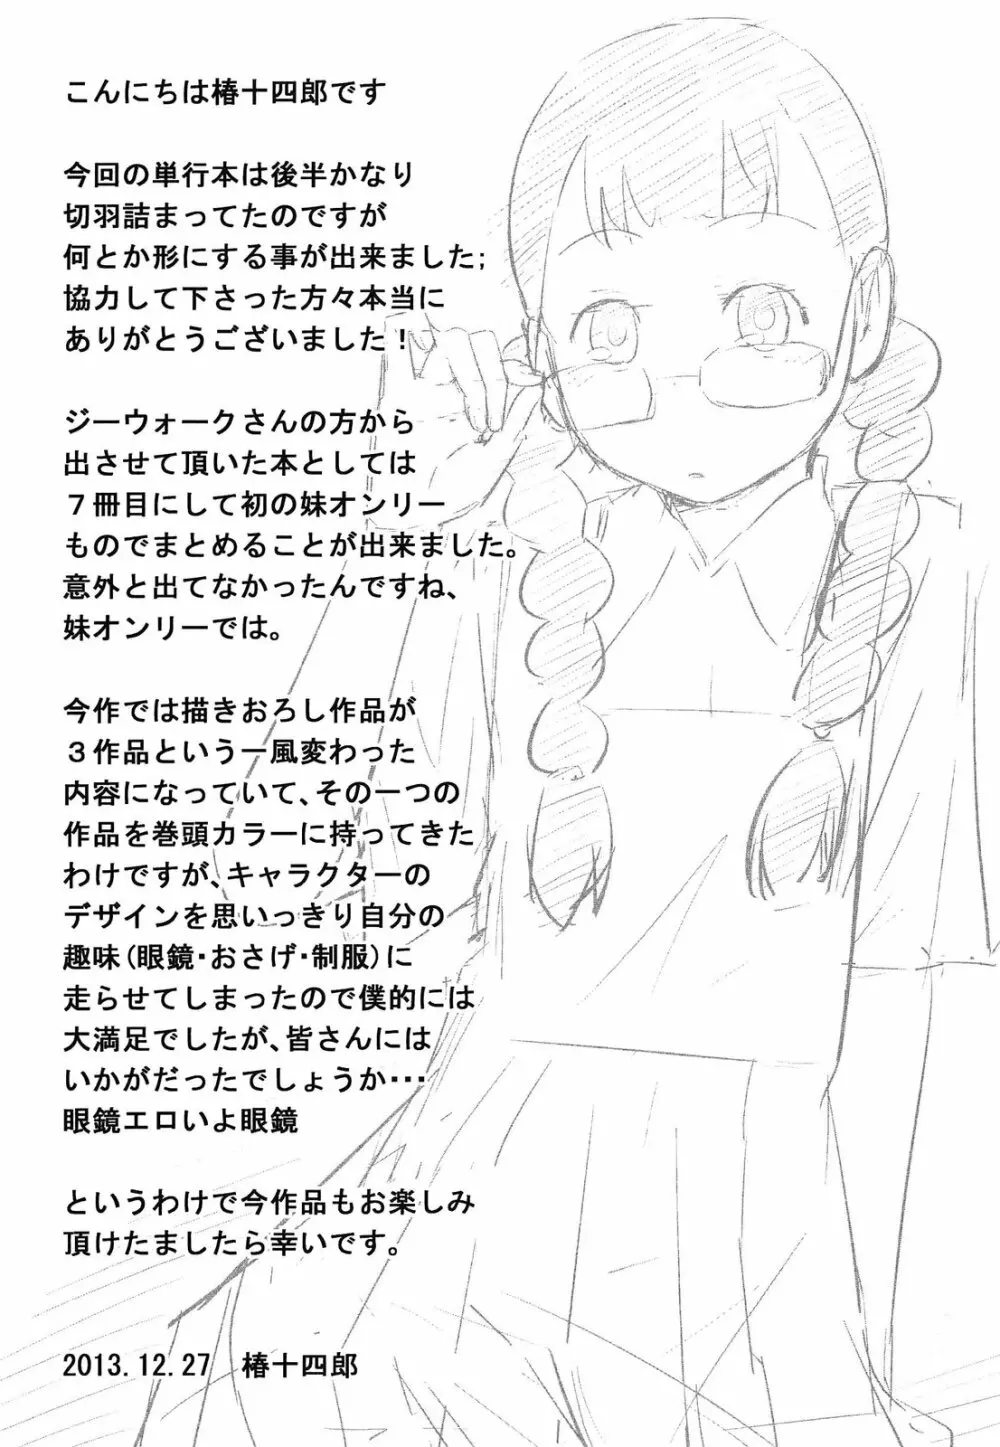 こんにちは椿十四郎です
今回の単行本は後半かなり
切羽詰まってたのですが
何とか形にする事が出来ました;
協力して下さった方々本当に
ありがとうございました!
ジーウォークさんの方から
出させて頂いた本としては
７冊目にして初の妹オンリー
ものでまとめることが出来ました。
意外と出てなかったんですね、
妹オンリーでは。
今作では描きおろし作品が
３作品という一風変わった
内容になっていて、その一つの
作品を巻頭カラーに持ってきた
わけですが、キャラクターの
デザインを思いっきり自分の
趣味(眼鏡・おさげ・制服)に
走らせてしまったので僕的には
大満足でしたが、皆さんには
いかがだったでしょうか・・・
眼鏡エロいよ眼鏡
というわけで今作品もお楽しみ
頂けたましたら幸いです。
2013.12.27　椿十四郎